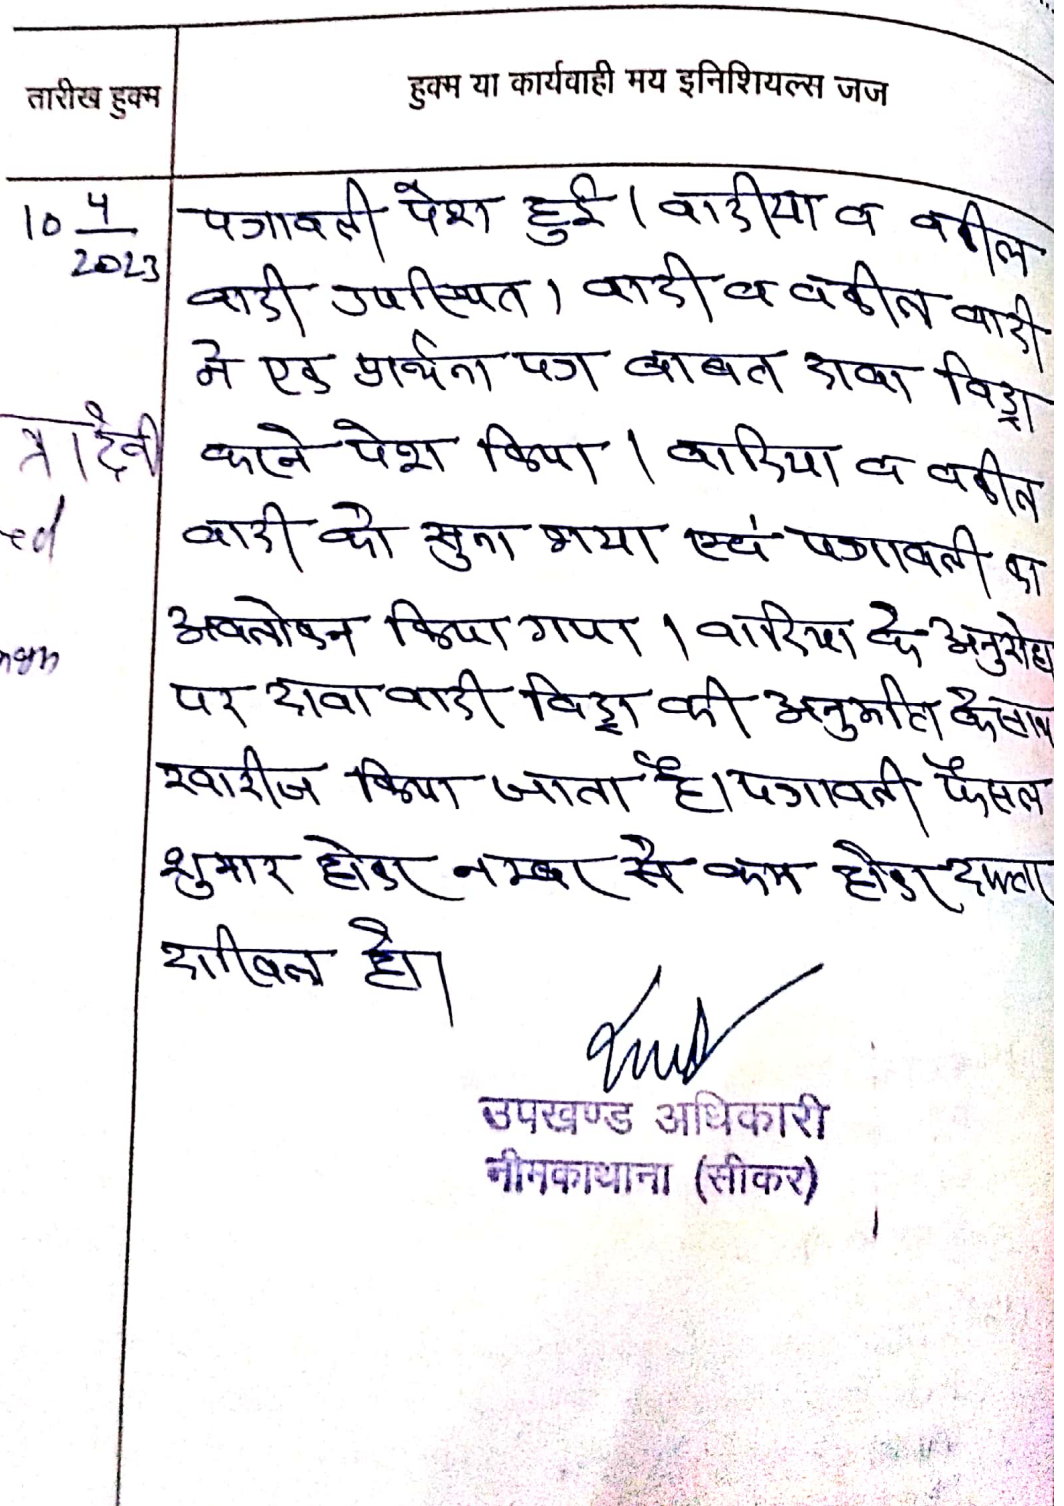 तारीख हुक्म
हुक्म या कार्यवाही मय इनिशियल्स जज
10 4/2023
पत्रावली पेश हुई। वादीया व वकील
वादी उपस्थित। वादी व वकील वादी
ने एक प्रार्थना पत्र बाबत दावा विड्रा
करने पेश किया। वादिया व वकील
वादी को सुना गया एवं पत्रावली का
अवलोकन किया गया। वादिया के अनुरोध
पर दावा वादी विड्रा की अनुमति के साथ
खारीज किया जाता है। पत्रावली फैसल
शुमार होकर नम्बर से कम होकर दफ्तर
दाखिल हो।
उपखण्ड अधिकारी
नीमकाथाना (सीकर)